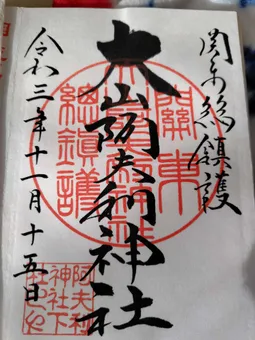 関東総鎮護
大山阿夫利神社
令和三年十一月十五日
關東
總鎮護
阿夫利
神社下
社